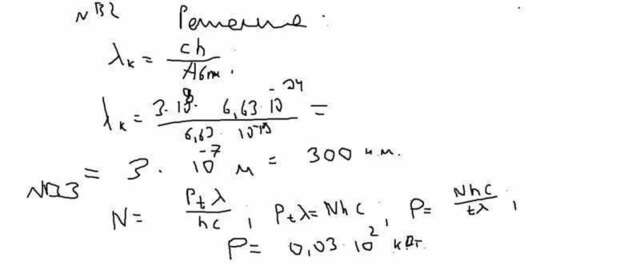 №2 Решение
λк = ch / Aвых.
λк = 3·10⁸ · 6,63·10⁻³⁴ / 6,63·10⁻¹⁹ =
= 3·10⁻⁷ м = 300 н.м.
№3 N = Ptλ / hc ; Ptλ = Nhc ; P = Nhc / tλ ;
P = 0,03·10² кВт.